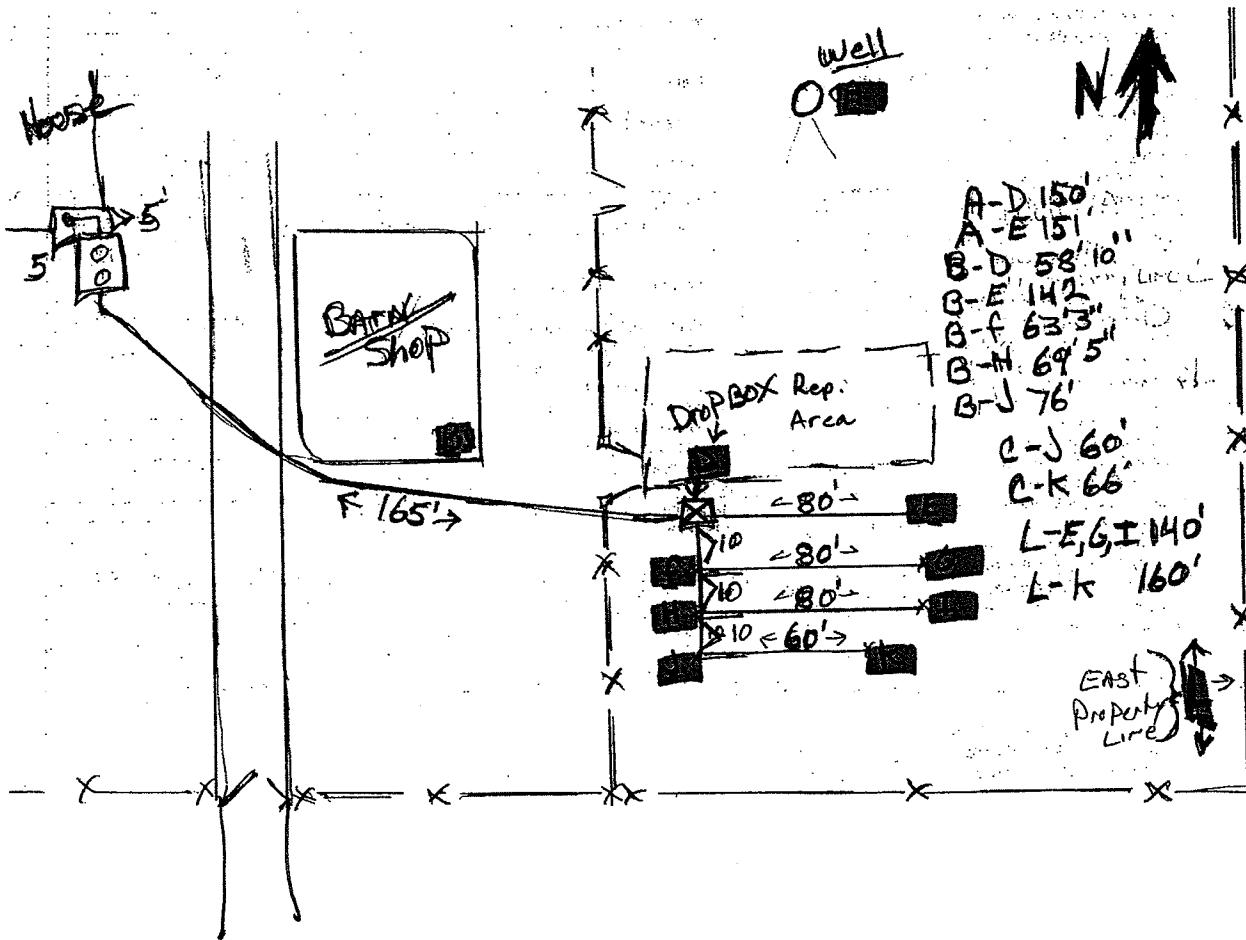 Well
N
House
5'
5
BArN
Shop
A-D 150'
A-E 151'
B-D 58'10"
B-E 142
B-F 63'3"
B-H 69'5"
B-J 76'
C-J 60'
C-K 66'
L-E,G,I 140'
L-K 160'
DropBOX Rep.
Area
165'
80'
10
80'
10
80'
10
60'
EAst
Property
Line